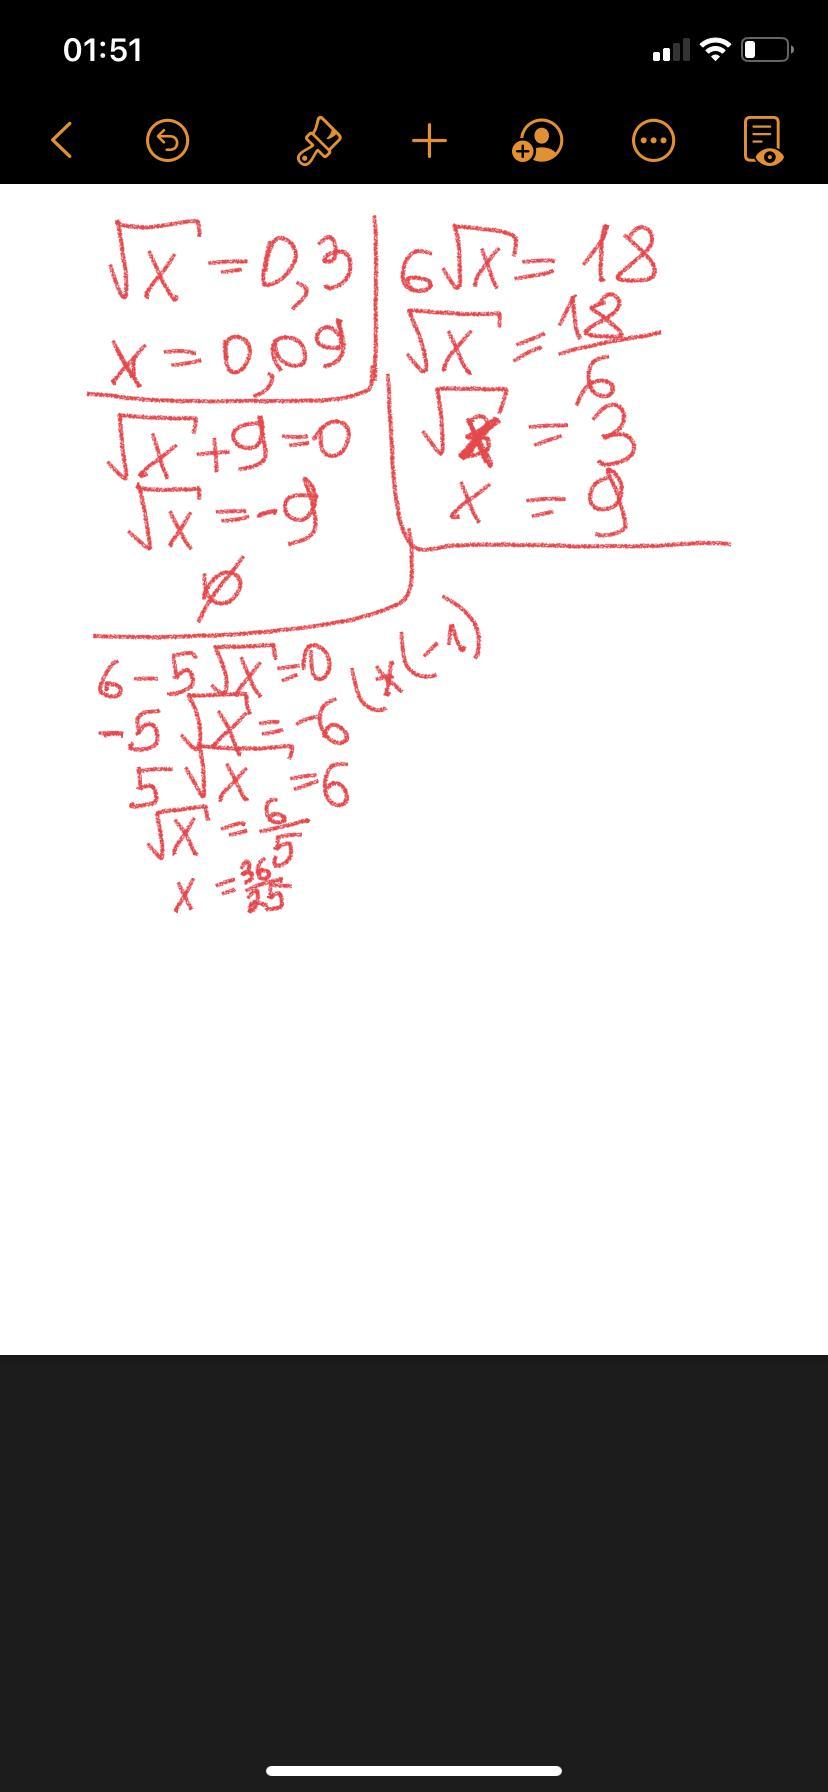 01:51
√x = 0,3
x = 0,09
6√x = 18
√x = 18/6
√x = 3
x = 9
√x + 9 = 0
√x = -9
∅
6 - 5√x = 0
-5√x = -6 (x(-1)
5√x = 6
√x = 6/5
x = 36/25